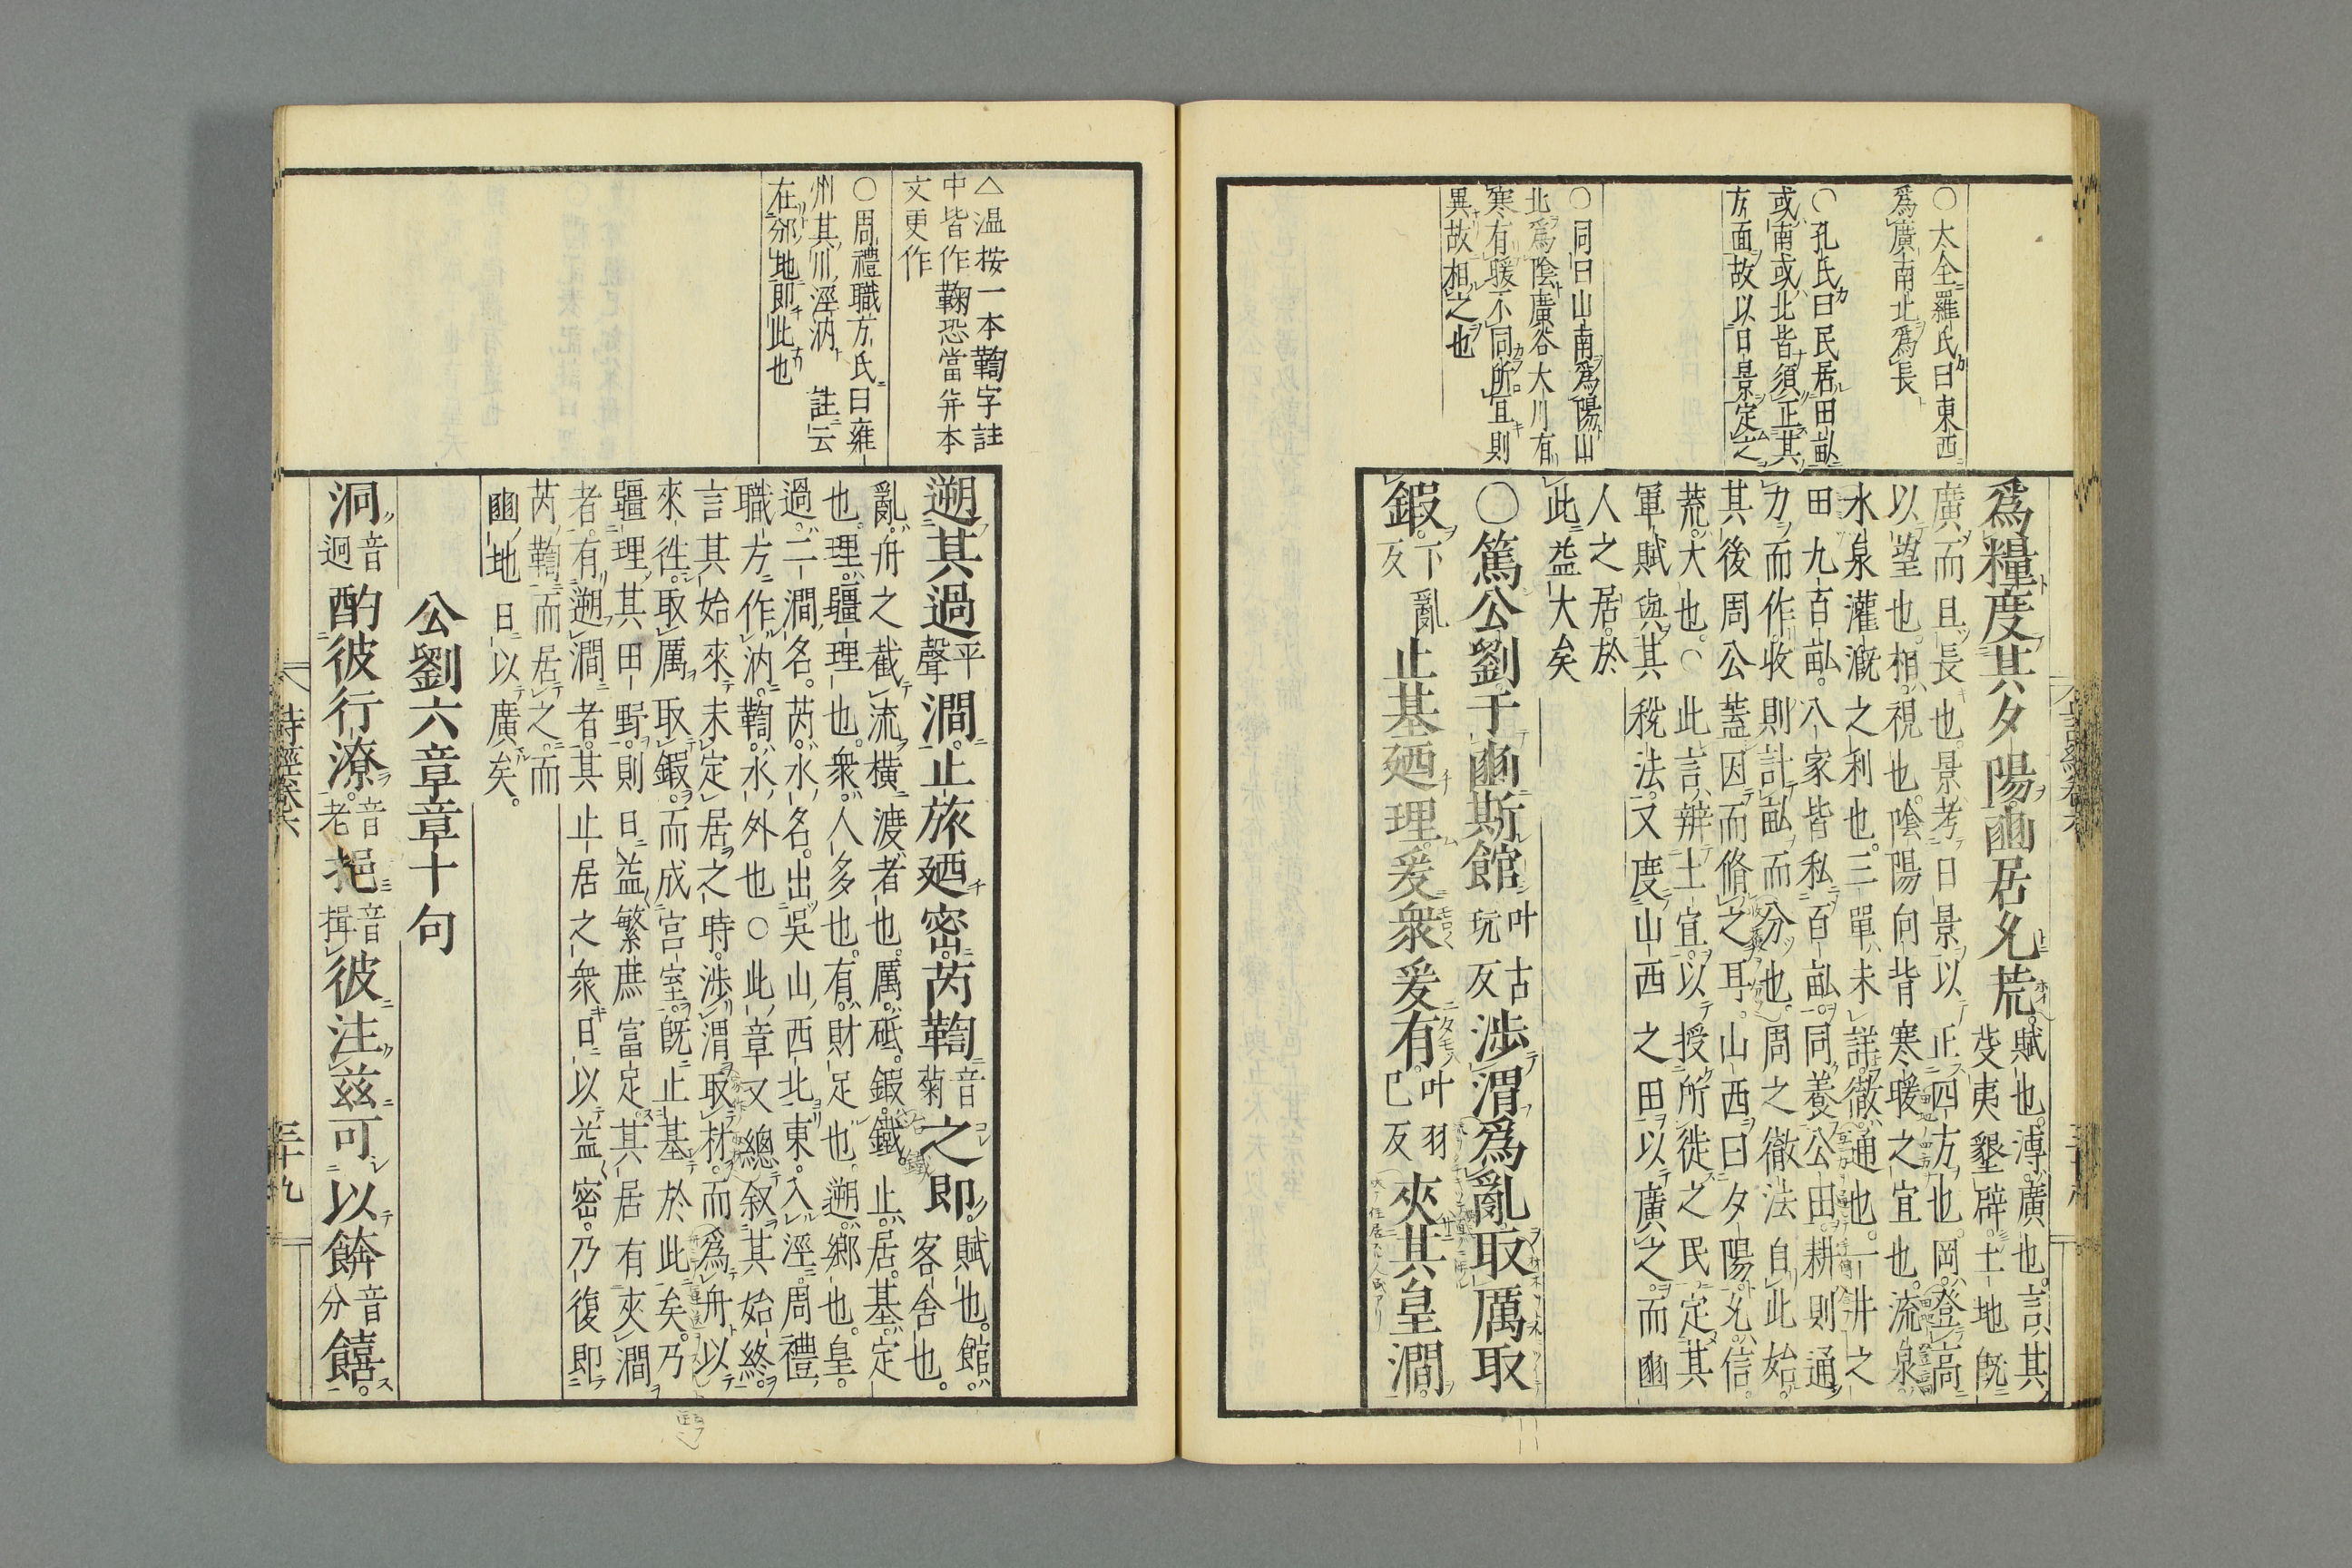 ○大全羅氏曰東西
爲廣南北爲長
○孔氏曰民居田畝
或南或北皆須正其
方面故以日景定之
○同曰山南爲陽山
北爲陰廣谷大川有
寒有暖不同所宜則
異故相之也
爲糧度其夕陽豳居允荒
賦也溥廣也言其
芟夷墾辟土地既
廣而且長也景考日景以正四方也岡登高
以望也相視也陰陽向背寒暖之宜也流泉
水泉灌漑之利也三單未詳徹通也一井之
田九百畝八家皆私百畝同養公田耕則通
力而作收則計畝而分也周之徹法自此始
其後周公蓋因而脩之耳山西曰夕陽允信
荒大也○此言辨土宜以授所徙之民定其
軍賦與其稅法又度山西之田以廣之而豳
人之居於
此益大矣
○篤公劉于豳斯館叶古玩反涉渭爲亂取厲取
鍜下反亂止基廼理爰衆爰有叶羽已反夾其皇澗
△温按一本鞫字註
中皆作鞠恐當并本
文更作
○周禮職方氏曰雍
州其川涇汭 註云
在豳地即此也
遡其過平聲澗止旅廼密芮鞫音菊之即
賦也館
客舍也
亂舟之截流橫渡者也厲砥鍜鐵止居基定
也理疆理也衆人多也有財足也遡鄉也皇
過二澗名芮水名出吳山西北東入涇周禮
職方作汭鞫水外也○此章又總叙其始終
言其始來未定居之時涉渭取材而爲舟以
來徃取厲取鍜而成宮室既止基於此矣乃
疆理其田野則日益繁庶富定其居有夾澗
者有遡澗者其止居之衆日以益密乃復即
芮鞫而居之而
豳地日以廣矣
公劉六章章十句
泂音迥酌彼行潦音老挹音揖彼注玆可以餴音分饎
詩經卷六
三十九